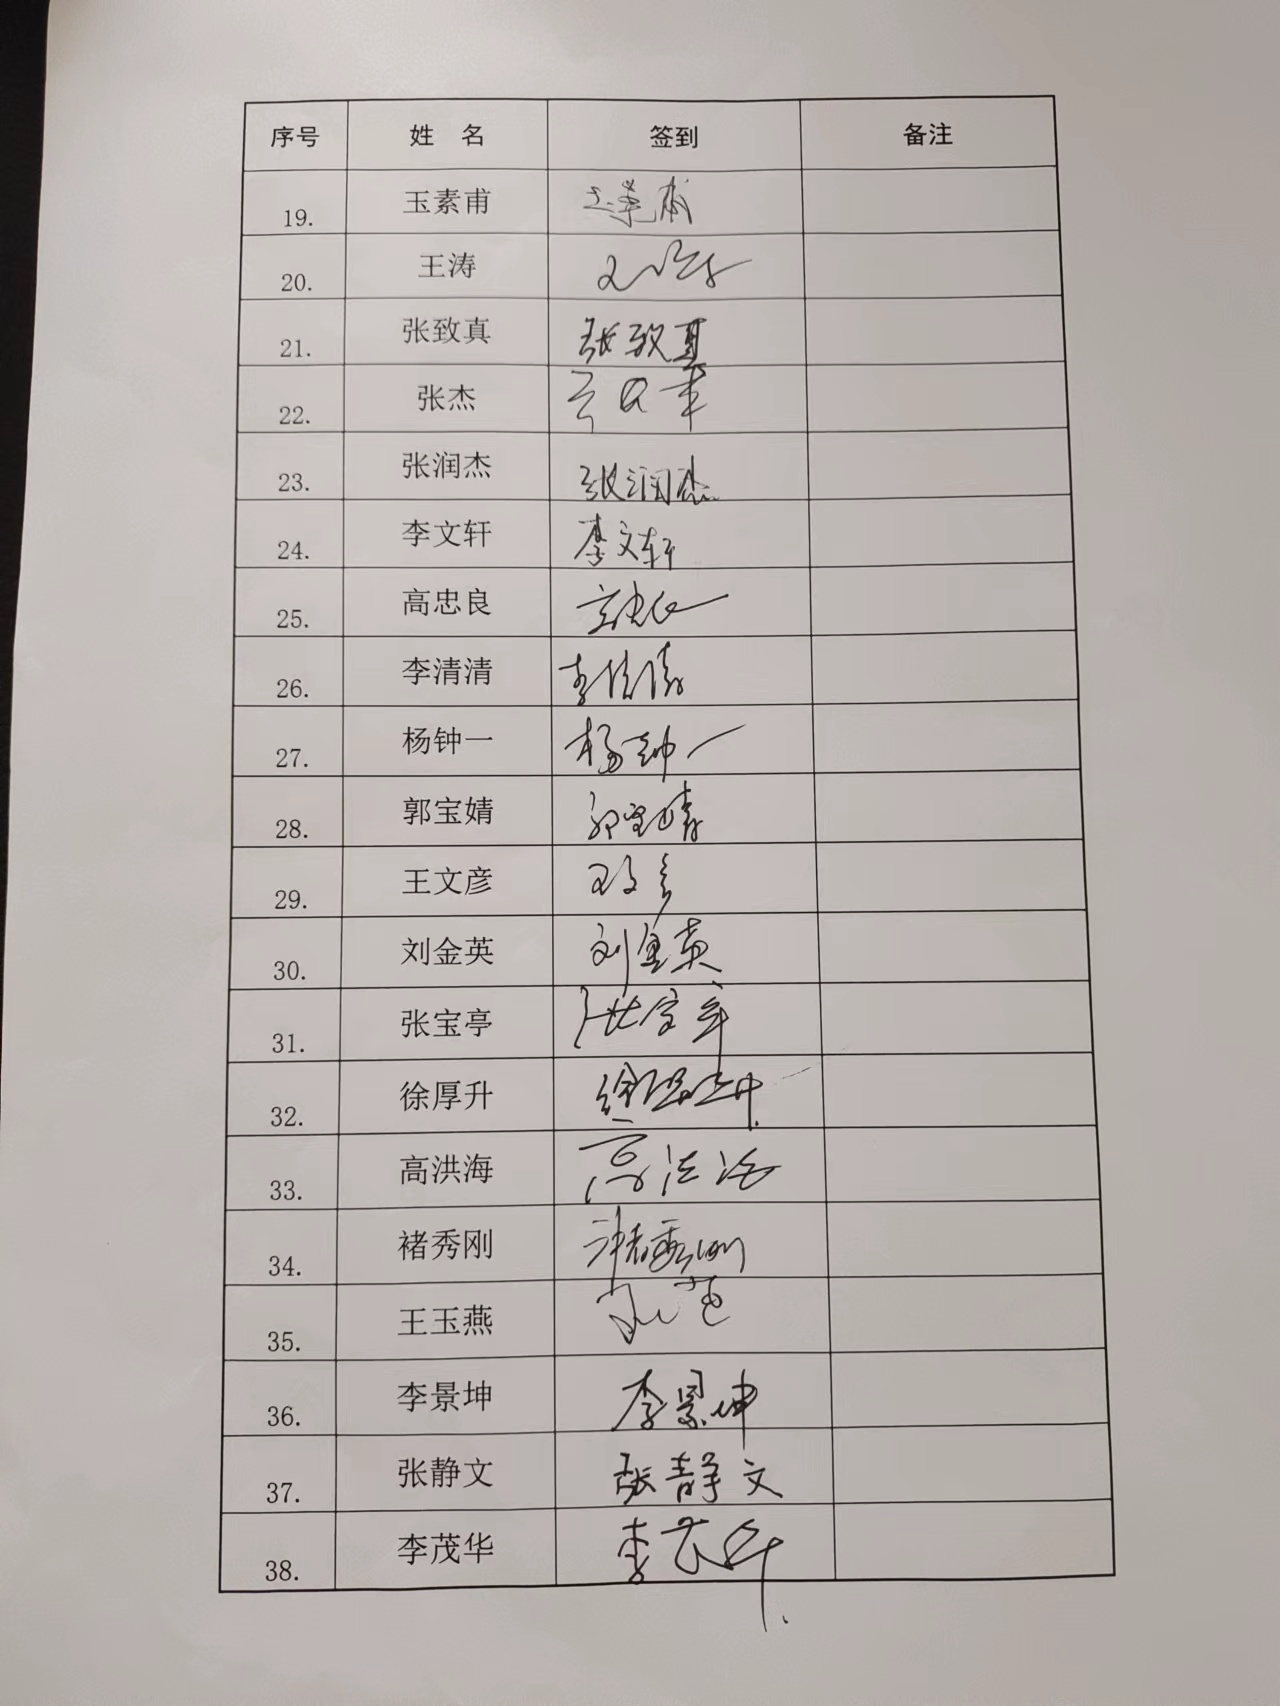 序号 姓 名 签到 备注
19. 玉素甫
20. 王涛
21. 张致真 张致真
22. 张杰
23. 张润杰 张润杰
24. 李文轩 李文轩
25. 高忠良 高忠良
26. 李清清 李清清
27. 杨钟一 杨钟一
28. 郭宝婧 郭宝婧
29. 王文彦 王文彦
30. 刘金英 刘金英
31. 张宝亭 张宝亭
32. 徐厚升 徐厚升
33. 高洪海 高洪海
34. 褚秀刚 褚秀刚
35. 王玉燕
36. 李景坤 李景坤
37. 张静文 张静文
38. 李茂华 李茂华